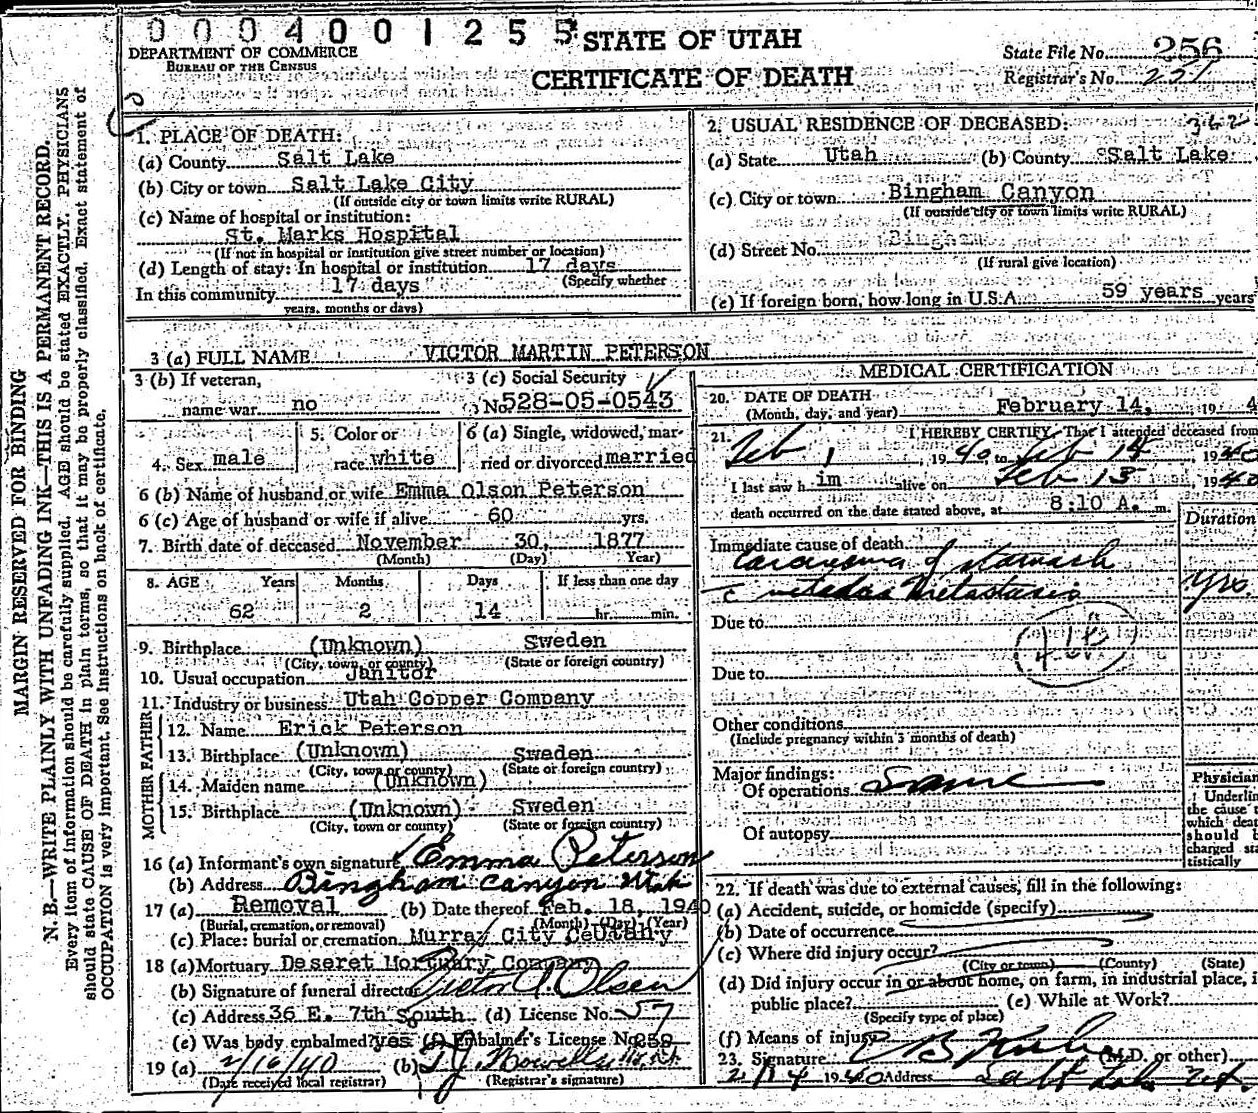 0004001255
STATE OF UTAH
DEPARTMENT OF COMMERCE
BUREAU OF THE CENSUS
CERTIFICATE OF DEATH
State File No. 256
Registrar's No. 251
MARGIN RESERVED FOR BINDING
N. B.—WRITE PLAINLY WITH UNFADING INK—THIS IS A PERMANENT RECORD.
Every item of information should be carefully supplied. AGE should be stated EXACTLY. PHYSICIANS
should state CAUSE OF DEATH in plain terms, so that it may be properly classified. Exact statement of
OCCUPATION is very important. See instructions on back of certificate.
1. PLACE OF DEATH:
(a) County Salt Lake
(b) City or town Salt Lake City
(If outside city or town limits write RURAL)
(c) Name of hospital or institution:
St. Marks Hospital
(If not in hospital or institution give street number or location)
(d) Length of stay: In hospital or institution 17 days
(Specify whether
In this community 17 days
years, months or days)
2. USUAL RESIDENCE OF DECEASED: 362
(a) State Utah (b) County Salt Lake
(c) City or town Bingham Canyon
(If outside city or town limits write RURAL)
(d) Street No. Bingham
(If rural give location)
(e) If foreign born, how long in U.S.A. 59 years years
3 (a) FULL NAME VICTOR MARTIN PETERSON
3 (b) If veteran,
name war no
3 (c) Social Security
No. 528-05-0543
4. Sex male
5. Color or
race white
6 (a) Single, widowed, mar-
ried or divorced married
6 (b) Name of husband or wife Emma Olson Peterson
6 (c) Age of husband or wife if alive 60 yrs.
7. Birth date of deceased November 30, 1877
(Month) (Day) Year)
8. AGE Years Months Days If less than one day
62 2 14 hr. min.
9. Birthplace (Unknown) Sweden
(City, town, or county) (State or foreign country)
10. Usual occupation Janitor
11. Industry or business Utah Copper Company
FATHER
12. Name Erick Peterson
13. Birthplace (Unknown) Sweden
(City, town or county) (State or foreign country)
MOTHER
14. Maiden name (Unknown)
15. Birthplace (Unknown) Sweden
(City, town or county) (State or foreign country)
16 (a) Informant's own signature Emma Peterson
(b) Address Bingham Canyon Utah
17 (a) Removal (b) Date thereof Feb. 18, 1940
(Burial, cremation, or removal) (Month) (Day) (Year)
(c) Place: burial or cremation Murray City Utah
18 (a) Mortuary Deseret Mortuary Company
(b) Signature of funeral director Victor P. Olsen
(c) Address 36 E. 7th South (d) License No. 57
(e) Was body embalmed? yes (f) Embalmer's License No. 239
19 (a) 2/16/40 (b) T. J. Howells
(Date received local registrar) (Registrar's signature)
MEDICAL CERTIFICATION
20. DATE OF DEATH
(Month, day, and year) February 14, 19 4
21. I HEREBY CERTIFY, That I attended deceased from
Feb 1, 1940 to Feb 14 1940
I last saw h im alive on Feb 13 1940
death occurred on the date stated above, at 8:10 A. m.
Duration
Immediate cause of death
Carcinoma of stomach
c metastasis yrs.
Due to
46B
Due to
Other conditions
(Include pregnancy within 3 months of death)
Major findings:
Of operations Same
Of autopsy
Physician
Underlin
the cause
which dea
should b
charged sta
tistically
22. If death was due to external causes, fill in the following:
(a) Accident, suicide, or homicide (specify)
(b) Date of occurrence
(c) Where did injury occur?
(City or town) (County) (State)
(d) Did injury occur in or about home, on farm, in industrial place, i
public place? (e) While at Work?
(Specify type of place)
(f) Means of injury
23. Signature (M.D. or other)
2/14 1940 Address Salt Lake